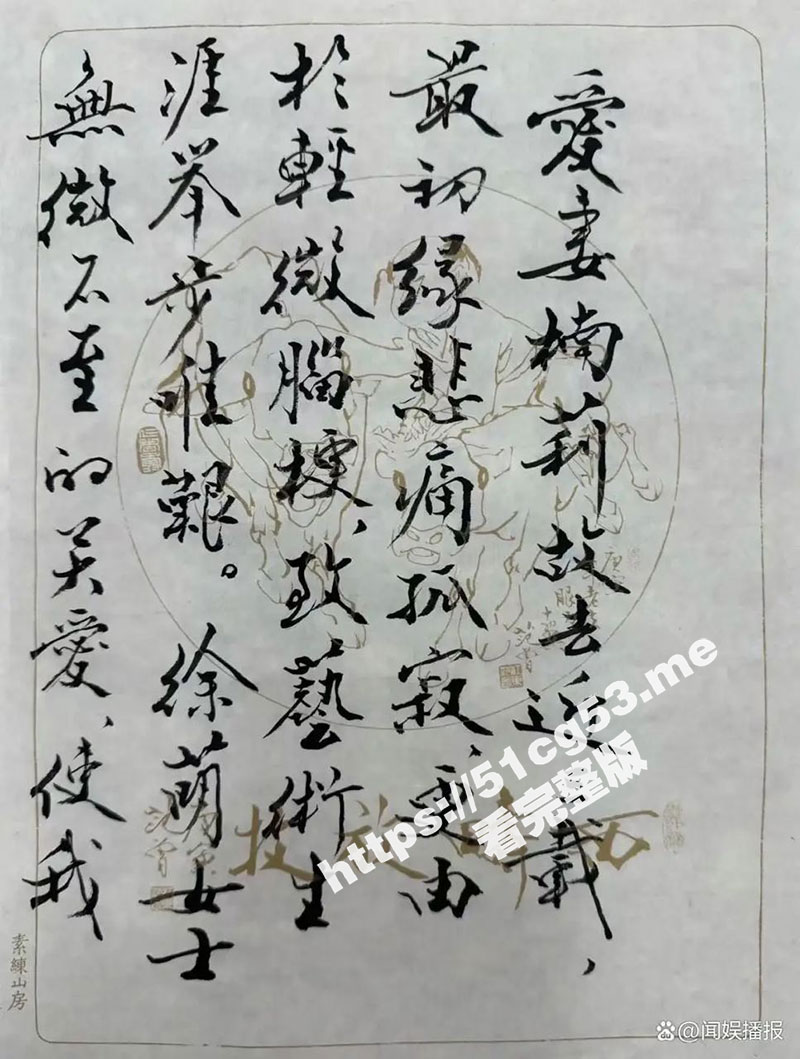 愛妻楠莉故去近載，
最初緣悲痛孤寂、更由
於輕微腦梗、致藝術生
涯举步唯艱。徐萌女士
無微不至的关愛、使我
素練山房
范曾
范曾
https://51cg53.me
看完整版
@闻娱播报